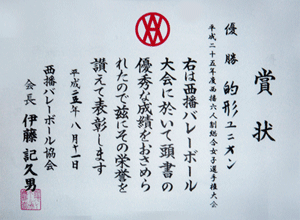 賞状
優勝 的形ユニオン
平成二十五年度西播六人制総合女子選手権大会
右は西播バレーボール
大会に於いて頭書の
優秀な成績をおさめら
れたので茲にその栄誉を
讃えて表彰します
平成二五年八月十一日
西播バレーボール協会
会長 伊藤記久男